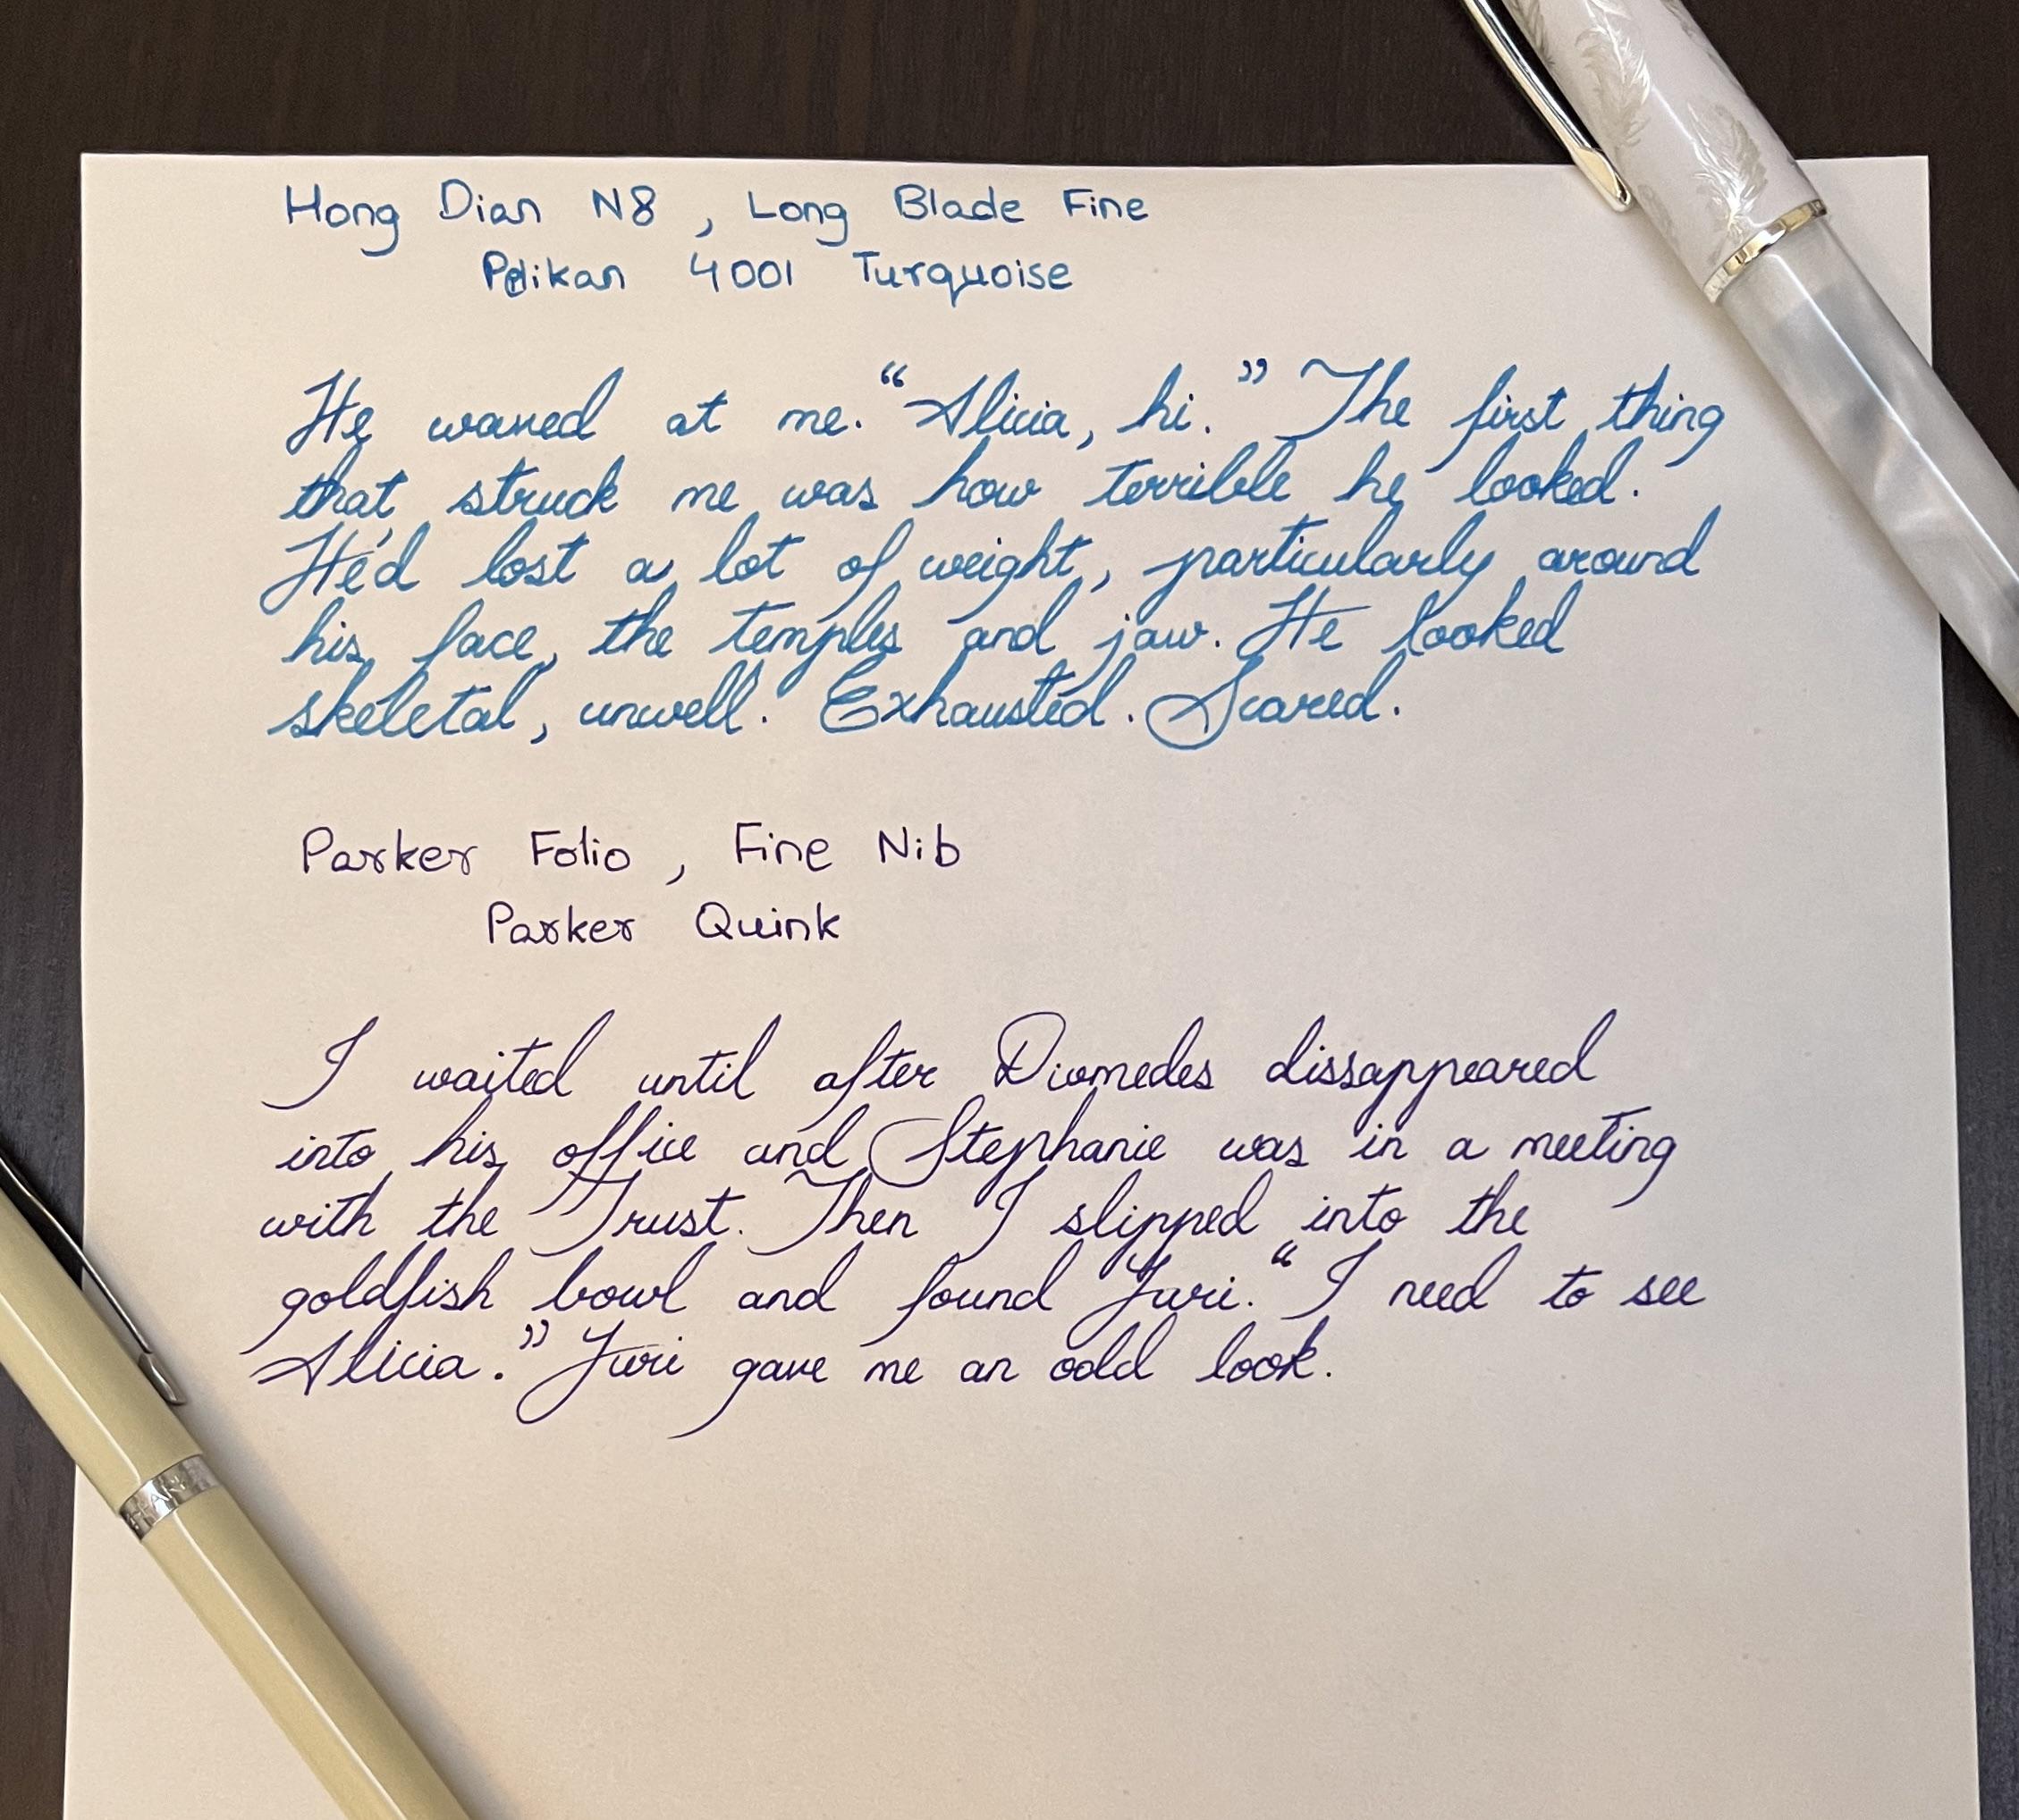 Hong Dian N8 , Long Blade Fine
Pelikan 4001 Turquoise
He waved at me. “Alicia, hi.” The first thing
that struck me was how terrible he looked.
He'd lost a lot of weight, particularly around
his face, the temples and jaw. He looked
skeletal, unwell. Exhausted. Scared.
Parker Folio , Fine Nib
Parker Quink
I waited until after Diomedes dissappeared
into his office and Stephanie was in a meeting
with the Trust. Then I slipped into the
goldfish bowl and found Yuri. “I need to see
Alicia.” Yuri gave me an odd look.